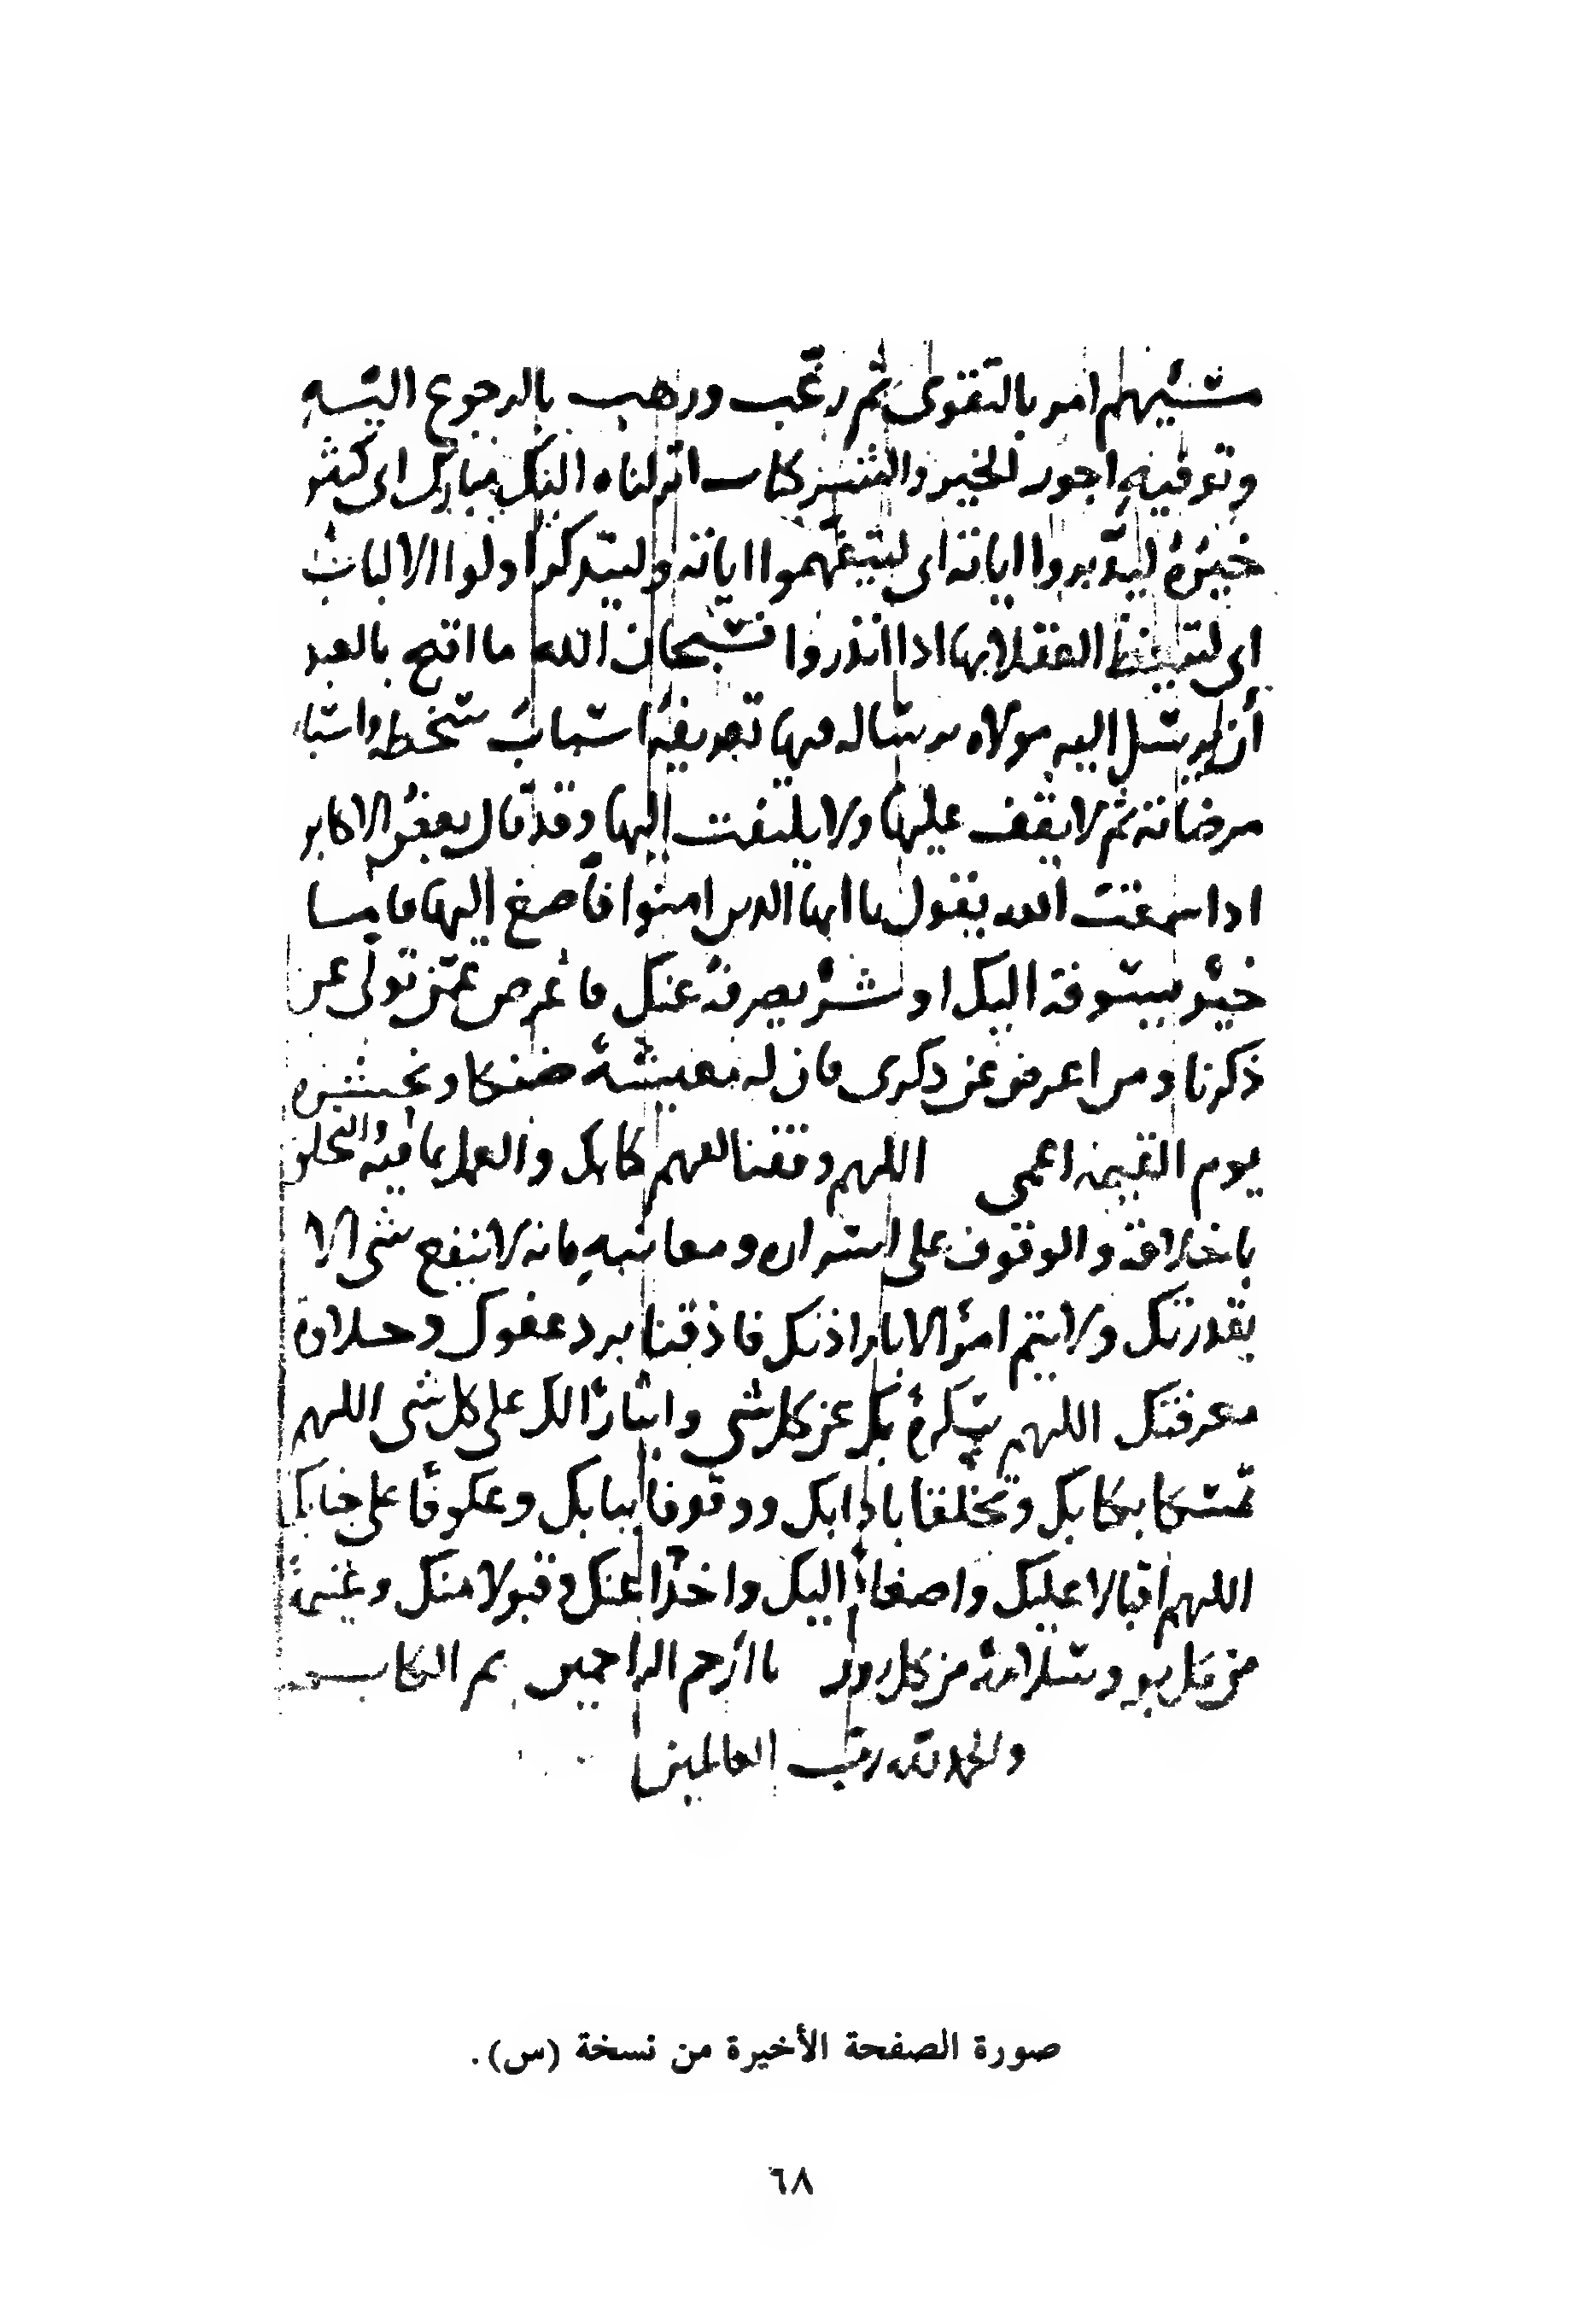 مسيهم امر بالتقوى ثم رغب ورهب بالرجوع اليه
وتوفيه اجور الخير والشر كتاب انزلناه اليك مبارك اى كثير
خيره ليدبروا اياته اى ليتفهموا اياته وليتذكر اولوا الالباب
اى لتتيقظ العقلا بها اذا انذروا فسبحان الله ما اقبح بالعبد
أن يرسل اليه مولاه رسالة فيها تعريفه اسباب سخطه واسباب
مرضاته ثم لا يقف عليها ولا يلتفت اليها وقد قال بعض الاكابر
اذا سمعت الله يقول يا ايها الذين امنوا فأصغ اليها فانها
خير يسوقه اليك او شر يصرفه عنك فأعرض عمن تولى عن
ذكرنا ومن اعرض عن ذكرى فان له معيشة ضنكا ونحشره
يوم القيمة اعمى اللهم وفقنا لفهم كتابك والعمل بما فيه والتخلق
باخلاقه والوقوف على اسراره ومعانيه فانه لا ينفع شى الا
بقدرتك ولا يتم امر الا باذنك فاذقنا برد عفوك وحلاوة
معرفتك اللهم بك عن كل شى وايثارا لك على كل شى اللهم
تمسكا بكتابك وتخلقا بادابك ووقوفا ببابك وعكوفا على جنابك
اللهم اقبالا عليك واصغاء اليك واخذا عنك وقبولا منك وغنيمة
من كل بر وسلامة من كل يا أرحم الراحمين تم الكتاب
والحمد لله رب العالمين
صورة الصفحة الأخيرة من نسخة (س).
٦٨